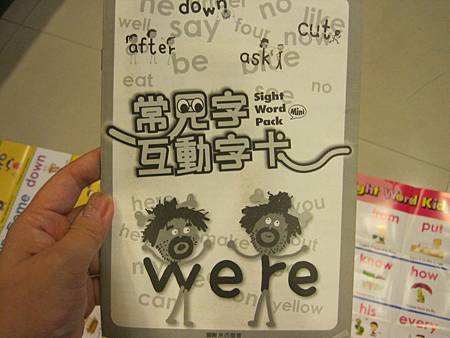 he down no like
well say four now cut
after be blue ask
eat see no
常見字
Sight
Word
Pack Mini
互動字卡
he you
here make out
were
can on yellow
down
come
Sight Word Kid
from put
know how
his every